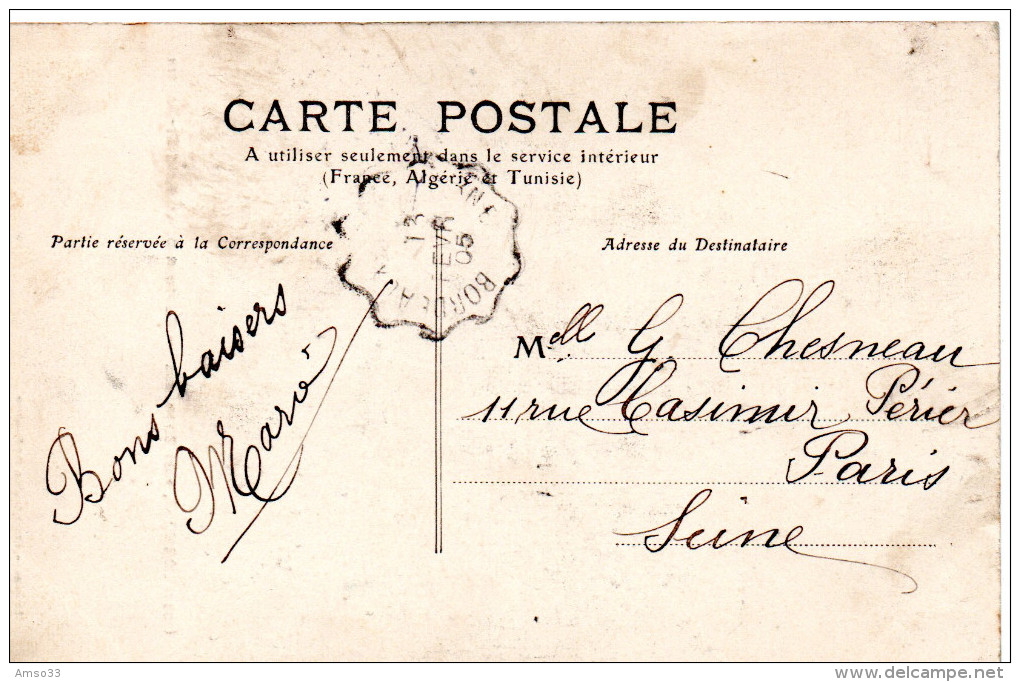 CARTE POSTALE
A utiliser seulement dans le service intérieur
(France, Algérie et Tunisie)
Partie réservée à la Correspondance
Adresse du Destinataire
13
FEVR
05
BORDEAUX
Bons baisers
Marie
Mell G. Chesneau
11 rue Casimir Périer
Paris
Seine
Amso33
www.delcampe.net